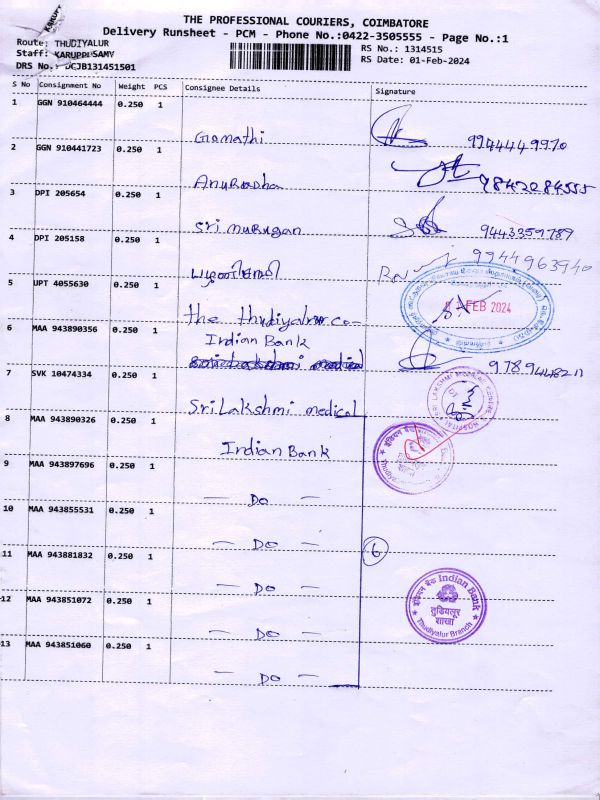 THE PROFESSIONAL COURIERS, COIMBATORE
Delivery Runsheet - PCM - Phone No.:0422-3505555 - Page No.:1
Route: THUDIYALUR
Staff: KARUPPUSAMY
DRS No.: DCJB131451501
RS No.: 1314515
RS Date: 01-Feb-2024
S No Consignment No Weight PCS Consignee Details Signature
1 GGN 910464444 0.250 1
Gomathi 9944449970
2 GGN 910441723 0.250 1
Anuradha 9842084555
3 DPI 205654 0.250 1
Sri Murugan 9443359789
4 DPI 205158 0.250 1
9944963940
5 UPT 4055630 0.250 1
the thudiyalur co-
FEB 2024
6 MAA 943890356 0.250 1
Indian Bank
7 SVK 10474334 0.250 1
Sri Lakshmi medical
8 MAA 943890326 0.250 1
Indian Bank
9 MAA 943897696 0.250 1
— Do —
10 MAA 943855531 0.250 1
— Do —
6
11 MAA 943881832 0.250 1
— Do —
12 MAA 943851072 0.250 1
— Do —
13 MAA 943851060 0.250 1
— Do —
इंडियन बैंक Indian Bank
तुडियलूर
शाखा
Thudiyalur Branch